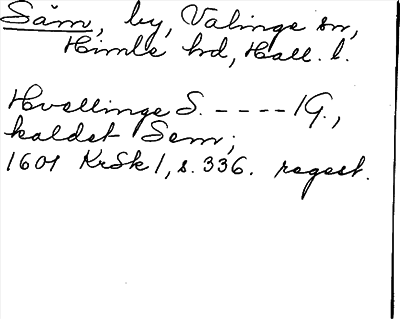 Säm, by, Valinge sn,
Himle hd, Hall. l.
Hvellinge S. - - - - 1 G.,
kaldet Sem;
1601 KrSk 1, s. 336. regest.